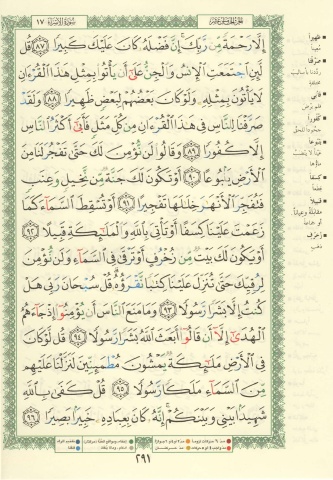 الجزء الخامس عشر
سورة الإسراء ١٧
إِلَّا رَحْمَةً مِّن رَّبِّكَ إِنَّ فَضْلَهُ كَانَ عَلَيْكَ كَبِيرًا ﴿٨٧﴾ قُل
لَّئِنِ اجْتَمَعَتِ الْإِنسُ وَالْجِنُّ عَلَىٰ أَن يَأْتُوا بِمِثْلِ هَٰذَا الْقُرْءَانِ
لَا يَأْتُونَ بِمِثْلِهِ وَلَوْ كَانَ بَعْضُهُمْ لِبَعْضٍ ظَهِيرًا ﴿٨٨﴾ وَلَقَدْ
صَرَّفْنَا لِلنَّاسِ فِي هَٰذَا الْقُرْءَانِ مِن كُلِّ مَثَلٍ فَأَبَىٰ أَكْثَرُ النَّاسِ
إِلَّا كُفُورًا ﴿٨٩﴾ وَقَالُوا لَن نُّؤْمِنَ لَكَ حَتَّىٰ تَفْجُرَ لَنَا مِنَ
الْأَرْضِ يَنبُوعًا ﴿٩٠﴾ أَوْ تَكُونَ لَكَ جَنَّةٌ مِّن نَّخِيلٍ وَعِنَبٍ
فَتُفَجِّرَ الْأَنْهَٰرَ خِلَٰلَهَا تَفْجِيرًا ﴿٩١﴾ أَوْ تُسْقِطَ السَّمَاءَ كَمَا
زَعَمْتَ عَلَيْنَا كِسَفًا أَوْ تَأْتِيَ بِاللَّهِ وَالْمَلَٰئِكَةِ قَبِيلًا ﴿٩٢﴾
أَوْ يَكُونَ لَكَ بَيْتٌ مِّن زُخْرُفٍ أَوْ تَرْقَىٰ فِي السَّمَاءِ وَلَن نُّؤْمِنَ
لِرُقِيِّكَ حَتَّىٰ تُنَزِّلَ عَلَيْنَا كِتَٰبًا نَّقْرَؤُهُ قُلْ سُبْحَانَ رَبِّي هَلْ
كُنتُ إِلَّا بَشَرًا رَّسُولًا ﴿٩٣﴾ وَمَا مَنَعَ النَّاسَ أَن يُؤْمِنُوا إِذْ جَاءَهُمُ
الْهُدَىٰ إِلَّا أَن قَالُوا أَبَعَثَ اللَّهُ بَشَرًا رَّسُولًا ﴿٩٤﴾ قُل لَّوْ كَانَ
فِي الْأَرْضِ مَلَٰئِكَةٌ يَمْشُونَ مُطْمَئِنِّينَ لَنَزَّلْنَا عَلَيْهِم
مِّنَ السَّمَاءِ مَلَكًا رَّسُولًا ﴿٩٥﴾ قُلْ كَفَىٰ بِاللَّهِ
شَهِيدًا بَيْنِي وَبَيْنَكُمْ إِنَّهُ كَانَ بِعِبَادِهِ خَبِيرًا بَصِيرًا ﴿٩٦﴾
ظهيراً
معيناً
صرّفنا
فأبى
كفوراً
ينبوعاً
كسفاً
قطعاً
قبيلاً
زخرف
ذهب
٢٩١